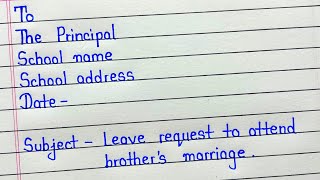 To
The Principal
School name
School address
Date -
Subject - Leave request to attend
brother's marriage.